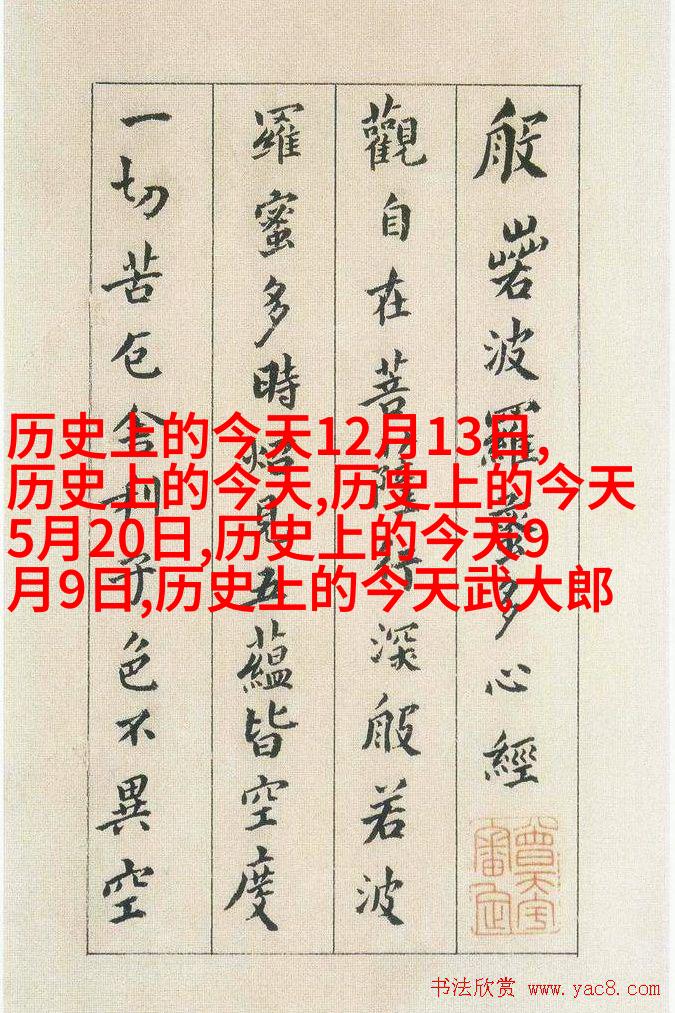 般若波羅蜜多心經
觀自在菩薩行深般若波
羅蜜多時照見五蘊皆空度
一切苦厄舍利子色不異空
历史上的今天12月13日,
历史上的今天,历史上的今天
5月20日,历史上的今天9
月9日,历史上的今天武大郎
书法欣赏 www.yac8.com